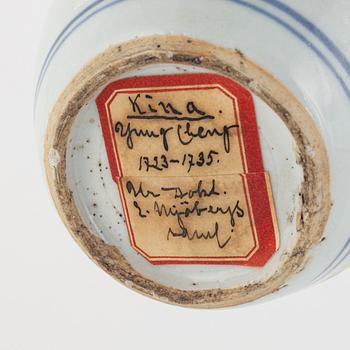 Kina.
Yung Cheng
1723-1735.
Ur Dokt.
E. Mjöbergs
saml.